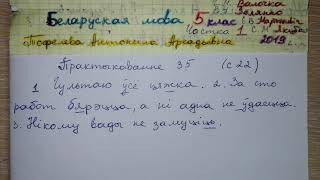 Беларуская мова 5 клас
Валочка
Зелянко
Мартынкевіч
Якуба
Частка 1
2019
Тофелева Антонина Аркадьевна
Практыкаванне 35 (с 22)
1. Гультаю ўсё цяжка. 2. За сто
работ бярэцца, а ні адна не ўдаецца.
3. Нікому вады не замуціць.